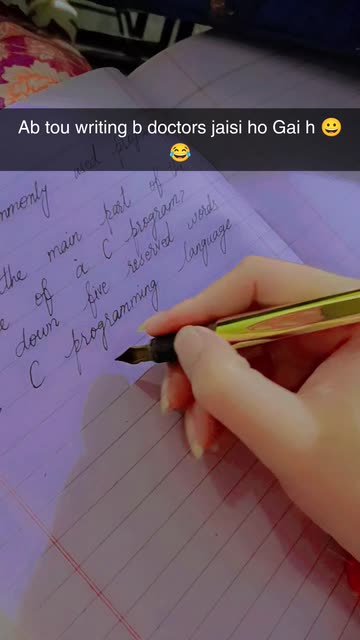 Ab tou writing b doctors jaisi ho Gai h 😀
😂
mmonly used
the main part of
of a C program?
down five reserved words
C programming language